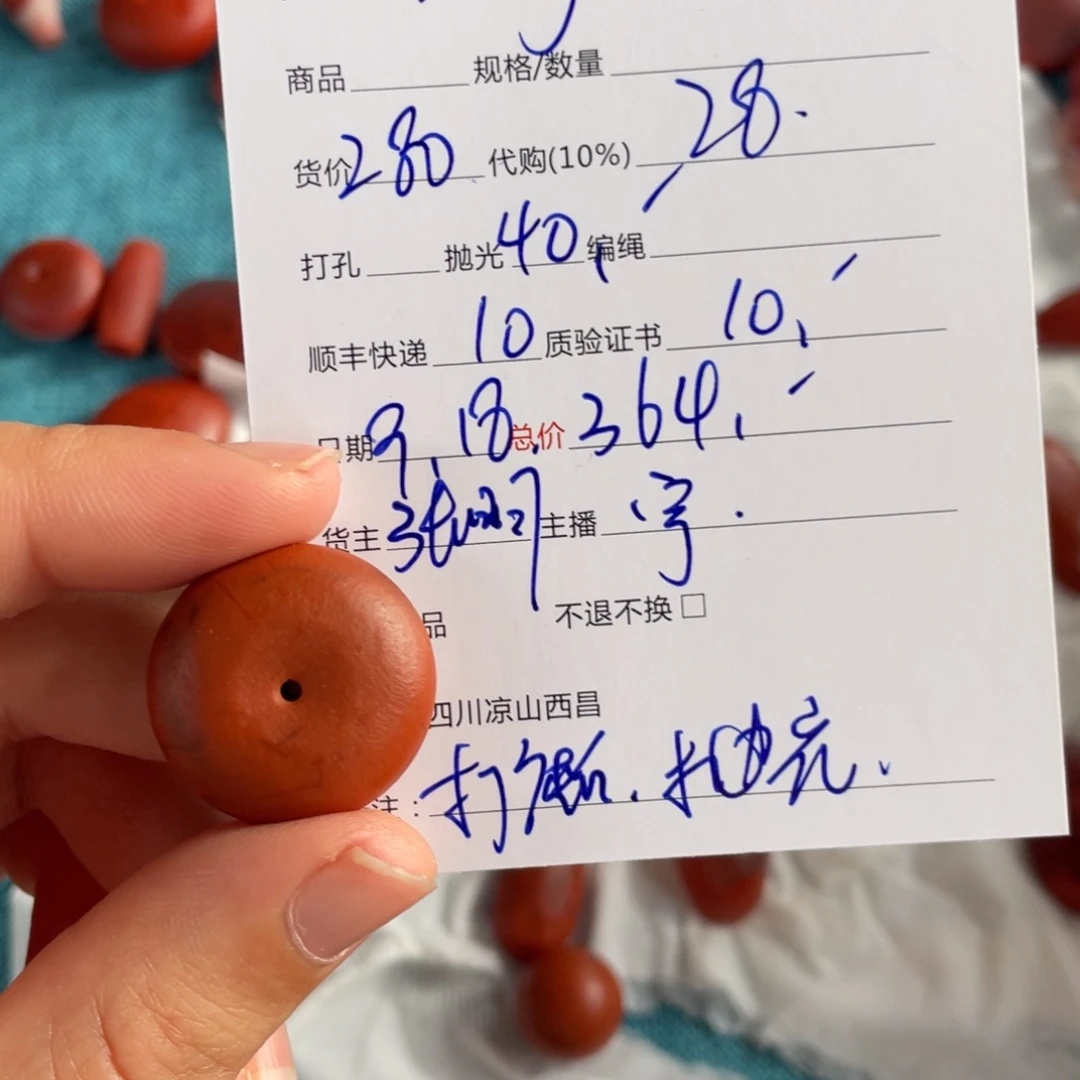 商品 规格/数量
货价 280 代购(10%) 28.
打孔 抛光 40, 编绳
顺丰快递 10 质验证书 10,
日期 9.18. 总价 364,
货主 主播 宇.
品 不退不换□
四川凉山西昌
注: 抛亮.